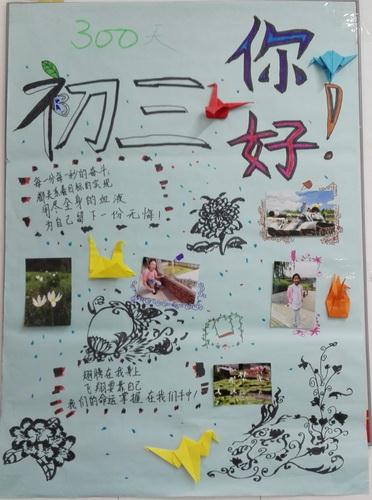 300天
初三
你好!
每一分每一秒的奋斗,
都关系着目标的实现
用尽全身的血液
为自己留下一份无悔!
翅膀在我身上
飞翔要靠自己
我们的命运掌握在我们手中!